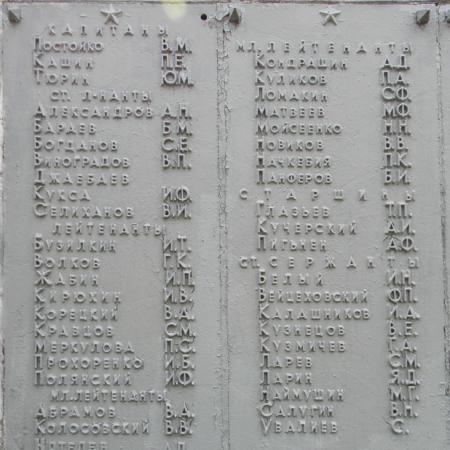 КАПИТАНЫ
ПОСТОЙКО В.М.
КАШИН П.Е.
ТЮРИН Ю.М.
СТ. Л-НАНТЫ
АЛЕКСАНДРОВ А.П.
БАРАЕВ Б.М.
БОГДАНОВ С.Е.
ВИНОГРАДОВ В.П.
ДЖАЕБАЕВ
КУКСА И.Ф.
СЕЛИХАНОВ В.И.
ЛЕЙТЕНАНТЫ
БУЗИЛКИН И.Т.
ВОЛКОВ Г.К.
ЖАБИН И.П.
КИРЮХИН И.В.
КОРЕЦКИЙ В.А.
КРАВЦОВ С.М.
МЕРКУЛОВА П.С.
ПРОХОРЕНКО И.Б.
ПОЛЯНСКИЙ И.Ф.
МЛ. ЛЕЙТЕНАНТЫ
АБРАМОВ В.А.
КОЛОСОВСКИЙ В.В.
МЛ. ЛЕЙТЕНАНТЫ
КОНДРАШИН А.Д.
КУЛИКОВ П.А.
ЛОМАКИН С.Ф.
МАТВЕЕВ М.Ф.
МОЙСЕЕНКО П.Н.
НОВИКОВ В.В.
ПАЧКЕВИЯ П.К.
ПАНФЕРОВ Б.И.
СТАРШИНЫ
ГЛАЗЬЕВ
КУЧЕРСКИЙ А.И.
ПИГЫНЕН А.Ф.
СТ. СЕРЖАНТЫ
БЕЛЫЙ И.Н.
ВЕЙЦЕХОВСКИЙ Ф.П.
КАЛАШНИКОВ И.А.
КУЗНЕЦОВ В.Е.
КУЗМИЧЕВ Г.А.
ЛАРЕВ С.М.
ЛАРИН Я.Д.
НАЙМУШИН М.Г.
САЛУГИН В.Н.
УВАЛИЕВ С.